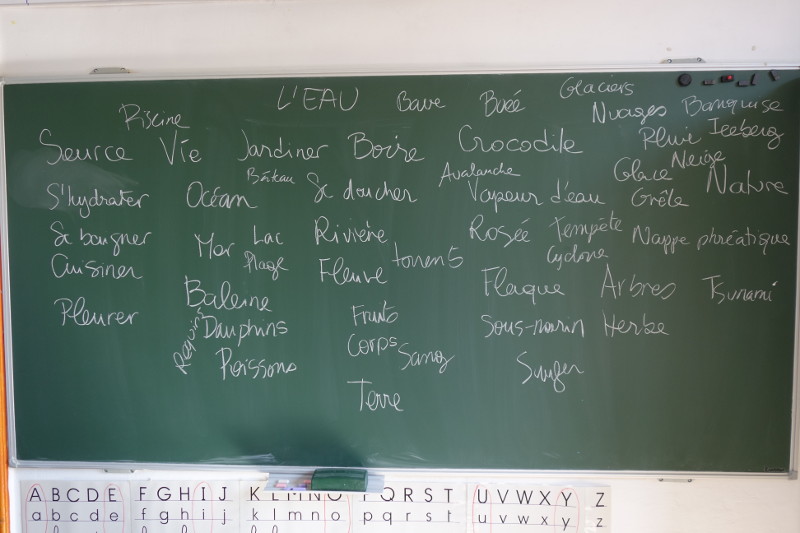 L'EAU Bave Buée Glaciers
Piscine Nuages Banquise
Source Vie Jardiner Boire Crocodile Pluie Iceberg
Bateau Avalanche Glace Neige
S'hydrater Océan Se doucher Vapeur d'eau Grêle Nature
Se baigner Mer Lac Rivière Rosée Tempête Nappe phréatique
Cuisiner Plage Fleuve torrents Cyclone
Baleine Flaque Arbres Tsunami
Pleurer Requins Dauphins Fruits Sous-marin Herbe
Poissons Corps Sang Surfer
Terre
A B C D E F G H I J K L M N O P Q R S T U V W X Y Z
a b c d e f g h i j k l m n o p q r s t u v w x y z